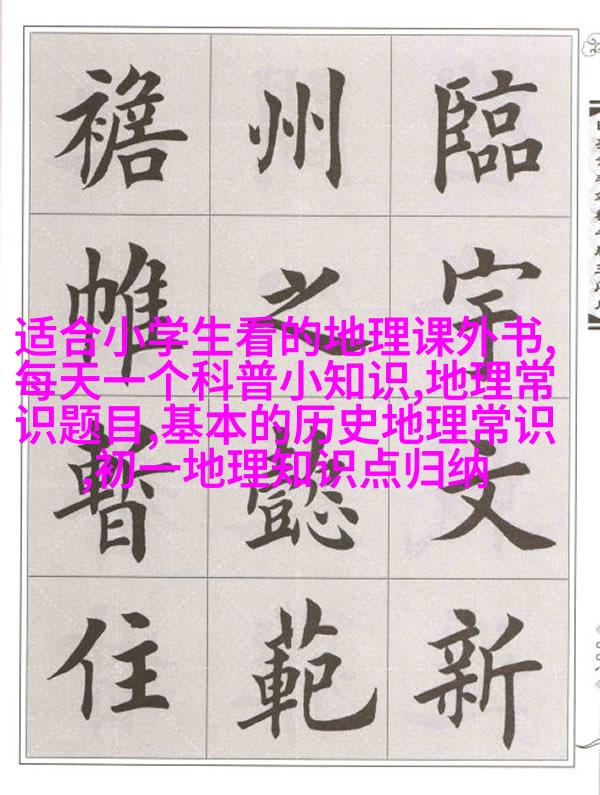 臨宇文新
州之懿範
襜帷暫住
适合小学生看的地理课外书,
每天一个科普小知识,地理常
识题目,基本的历史地理常识
,初一地理知识点归纳